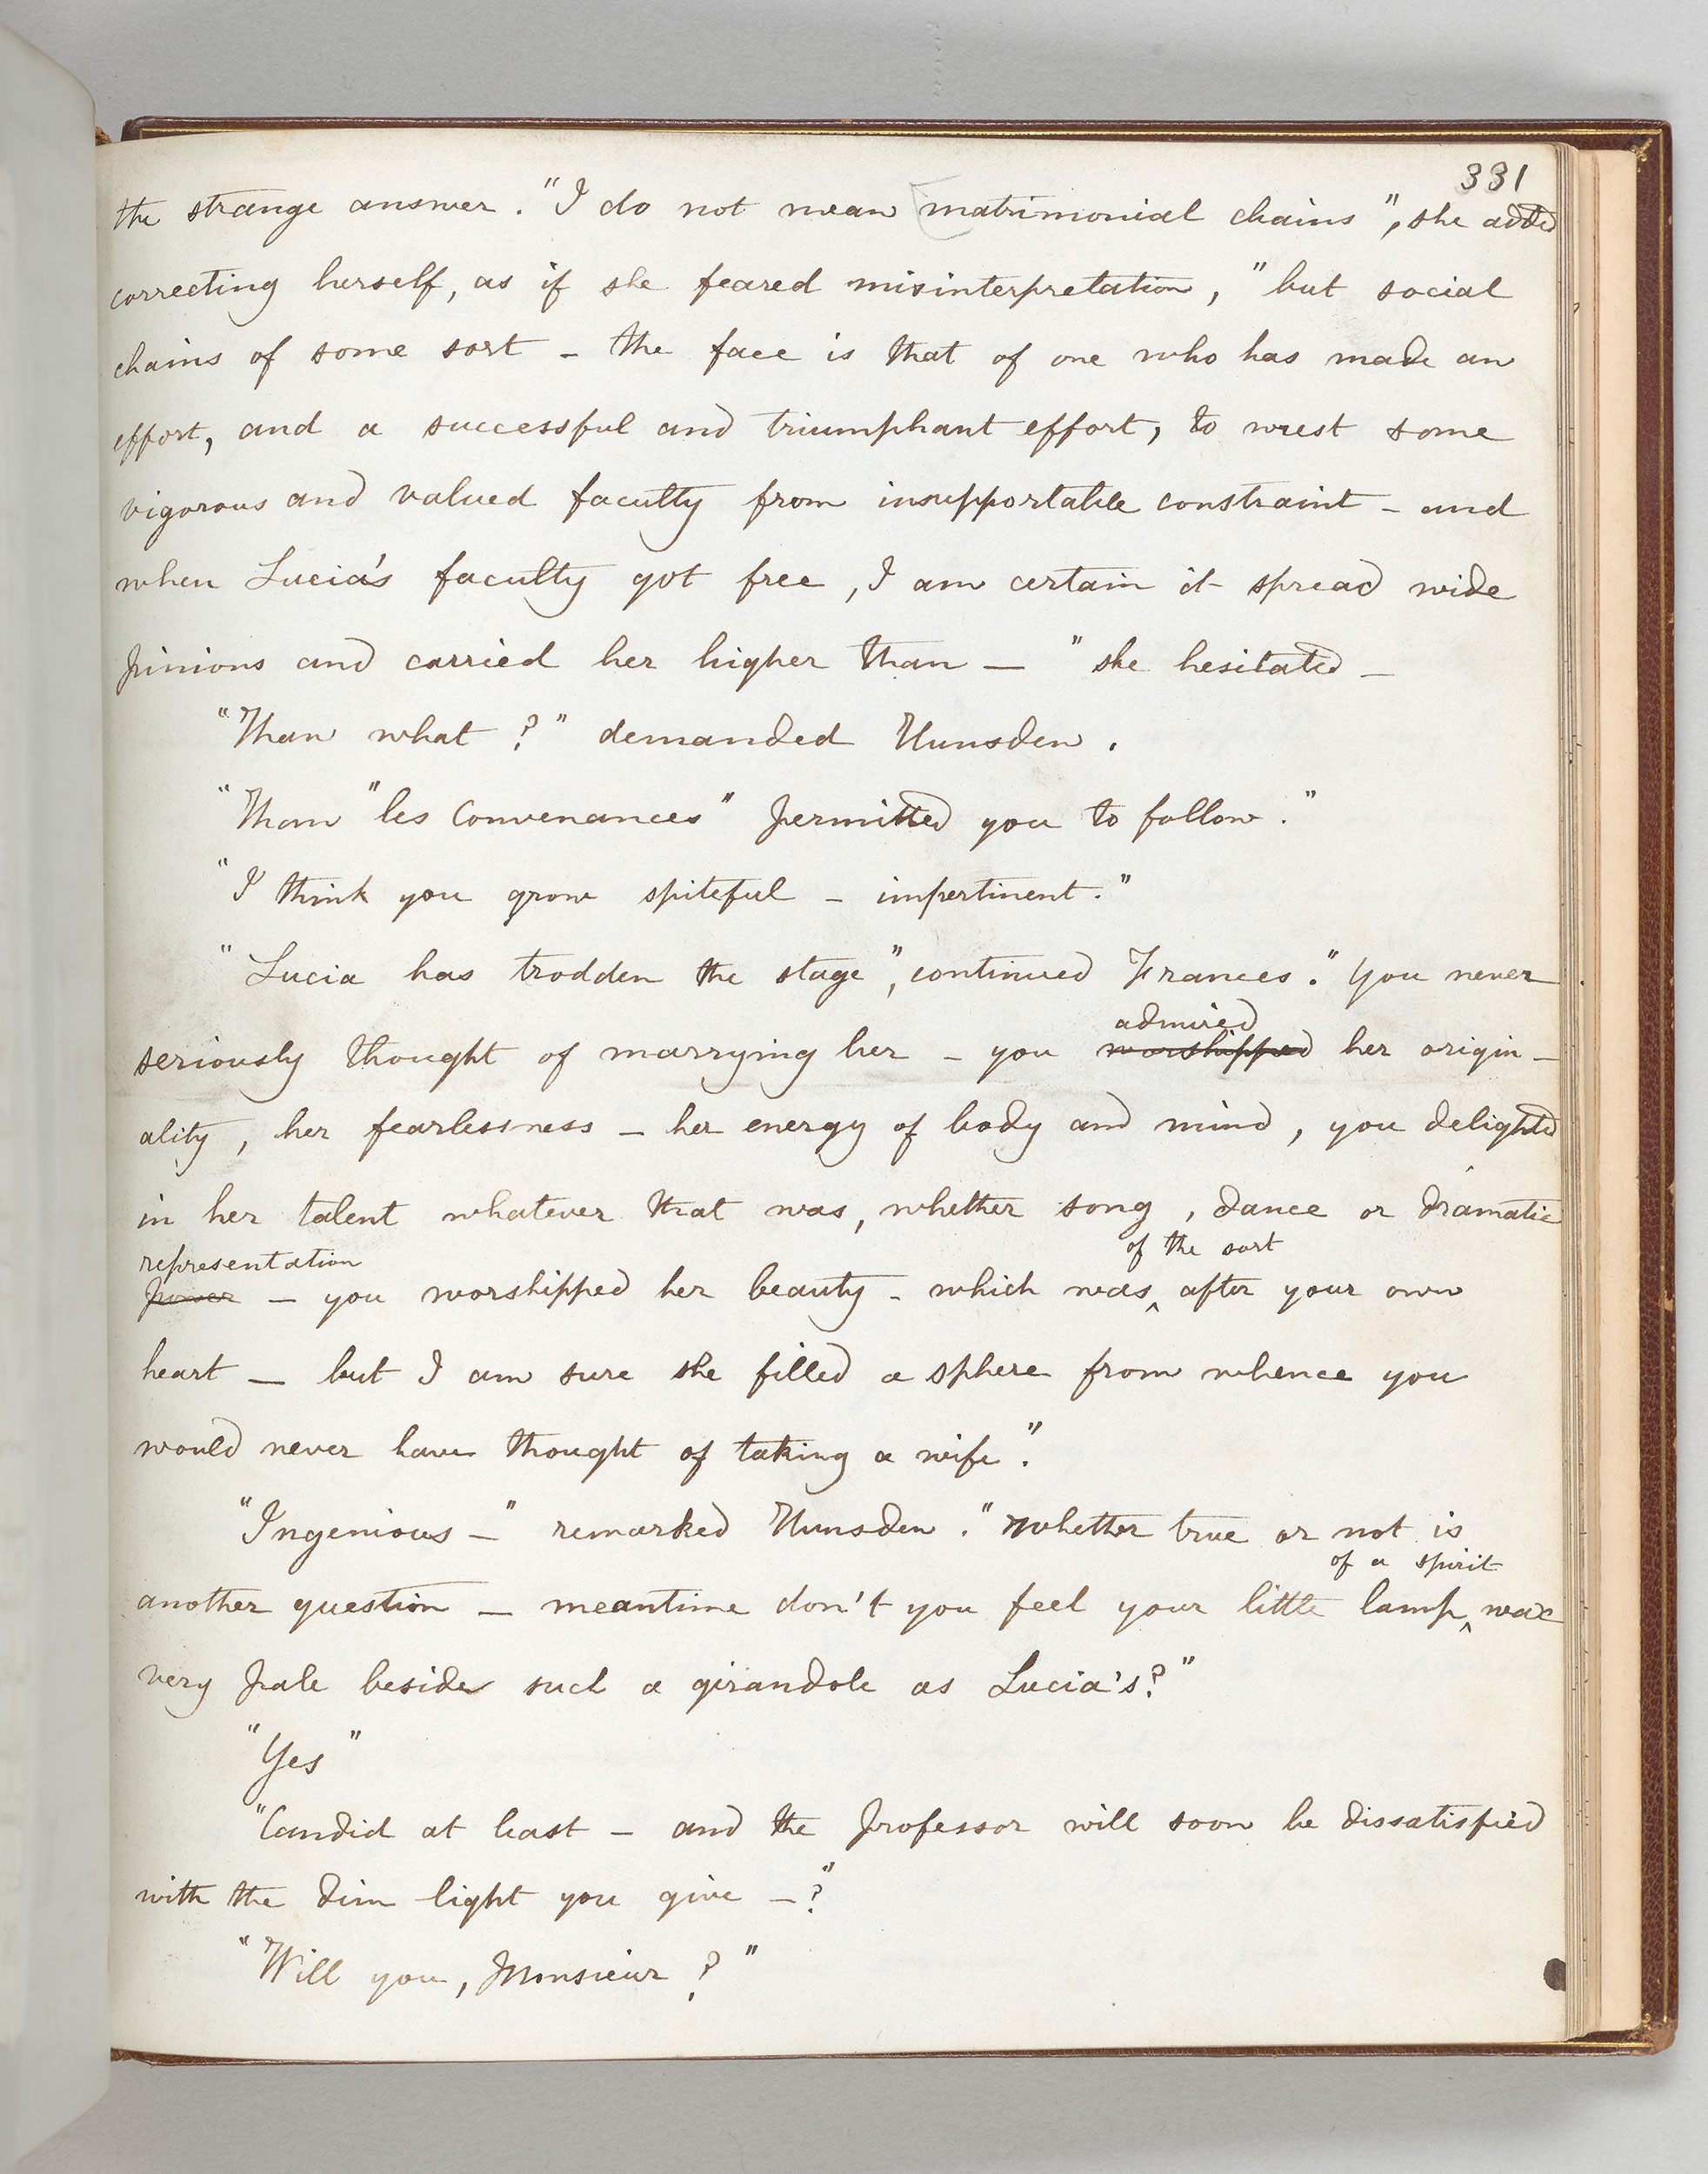 331
the strange answer. "I do not mean matrimonial chains", she added
correcting herself, as if she feared misinterpretation, "but social
chains of some sort - the face is that of one who has made an
effort, and a successful and triumphant effort, to wrest some
vigorous and valued faculty from insupportable constraint - and
when Lucia's faculty got free, I am certain it spread wide
pinions and carried her higher than — " she hesitated -
"Than what?" demanded Hunsden.
"Than "les convenances" permitted you to follow."
"I think you grow spiteful - impertinent."
"Lucia has trodden the stage", continued Frances. "You never
admired
seriously thought of marrying her - you worshipped her origin-
ality, her fearlessness - her energy of body and mind, you delighted
in her talent whatever that was, whether song, dance or dramatic
representation of the sort
power — you worshipped her beauty - which was^ after your own
heart — but I am sure she filled a sphere from whence you
would never have thought of taking a wife."
"Ingenious —" remarked Hunsden. "Whether true or not is
of a spirit
another question — meantime don't you feel your little lamp^ wax
very pale beside such a girandole as Lucia's?"
"Yes"
"Candid at least - and the Professor will soon be dissatisfied
with the dim light you give —?"
"Will you, Monsieur?"